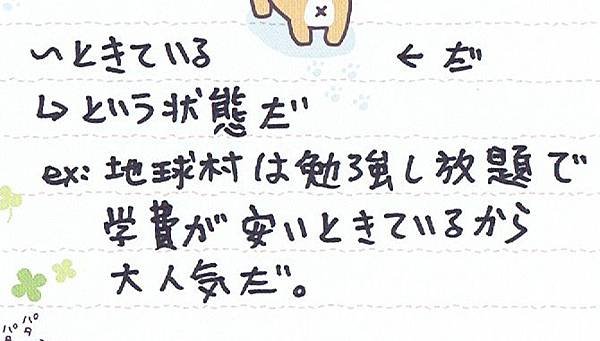 〜ときている ← だ
↳ という状態だ
ex: 地球村は勉強し放題で
学費が安いときているから
大人気だ。
パタ パタ